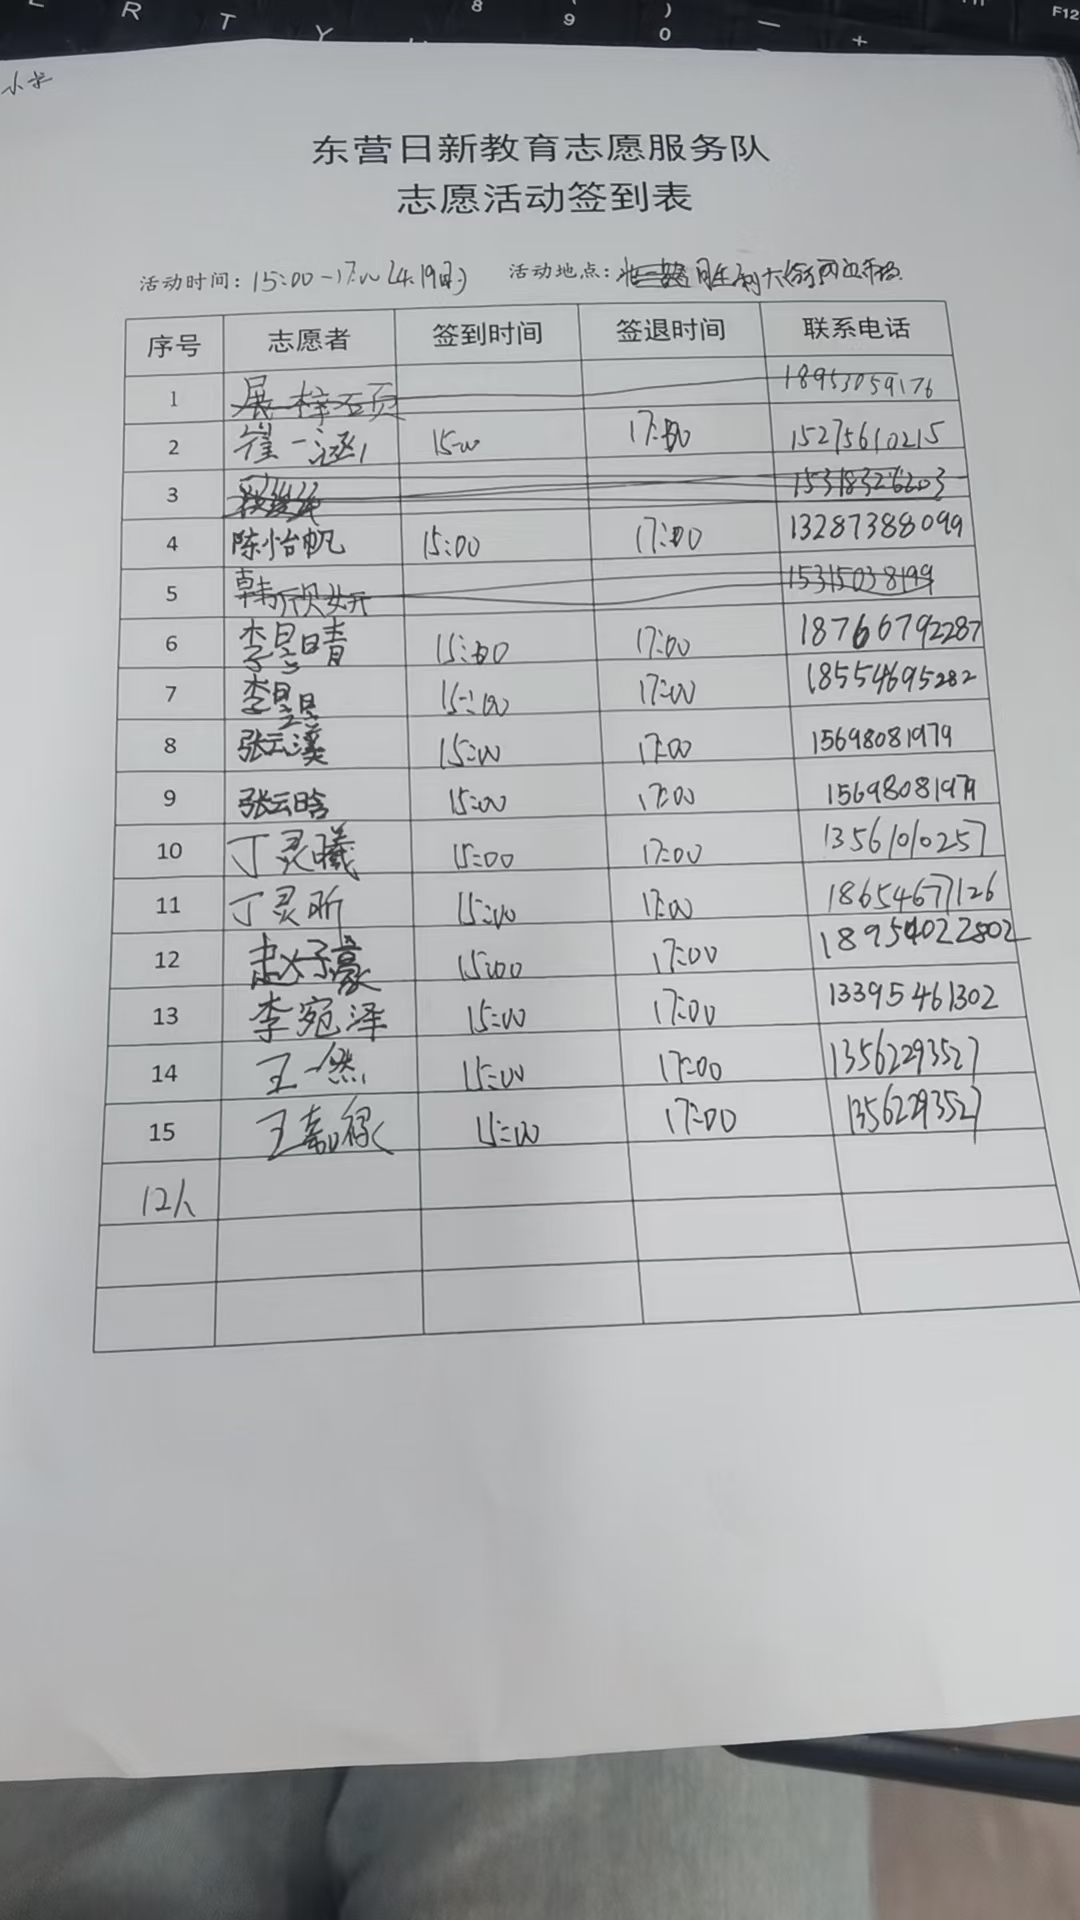 R T Y 8 9 ) 0 — + F12
东营日新教育志愿服务队
志愿活动签到表
活动时间：15:00-17:00（4.19日） 活动地点：
序号 志愿者 签到时间 签退时间 联系电话
1 展梓硕 18953059176
2 崔一涵 15:00 17:00 15275610215
3 15318326203
4 陈怡帆 15:00 17:00 13287388099
5 韩颐妍 15315038199
6 李昙晴 15:00 17:00 18766792287
7 李昙昙 15:00 17:00 18554695282
8 张云溪 15:00 17:00 15698081979
9 张云晗 15:00 17:00 15698081979
10 丁灵曦 15:00 17:00 13561010257
11 丁灵昕 15:00 17:00 18654677126
12 赵子豪 15:00 17:00 18954022802
13 李宛泽 15:00 17:00 13395461302
14 王一然 15:00 17:00 13562293527
15 王嘉禄 15:00 17:00 13562293527
12人